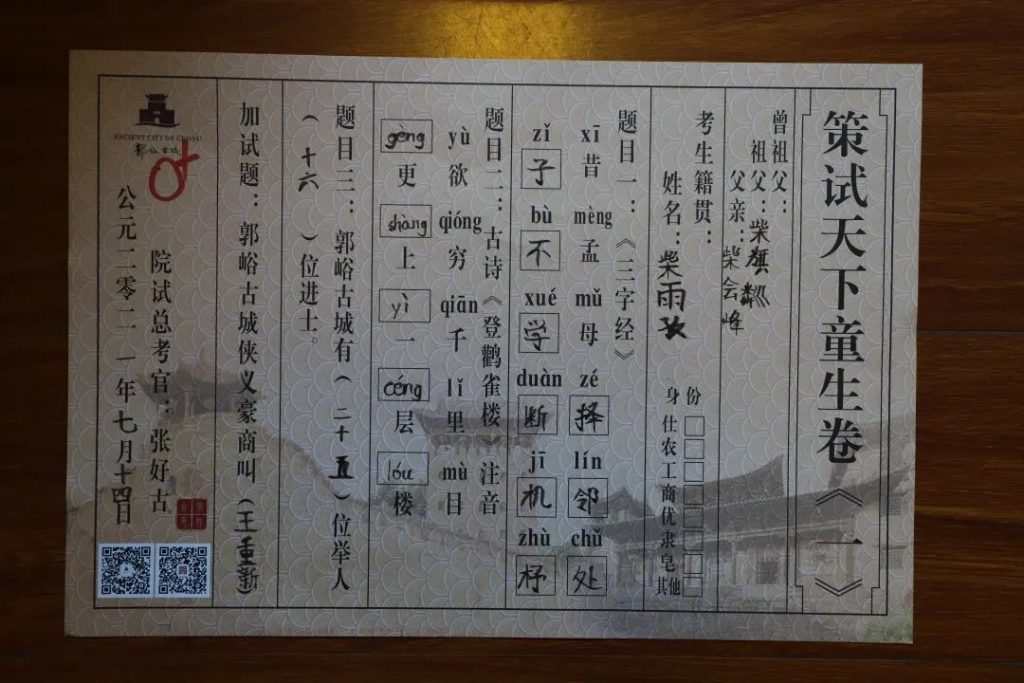 策试天下童生卷《一》
曾祖父：
祖父：柴旗
父亲：柴会峰
考生籍贯：
姓名：柴雨
身份
仕农工商优隶皂其他
题目一：《三字经》
xī mèng mǔ zé lín chǔ
昔孟母择邻处
zǐ bù xué duàn jī zhù
子不学断机杼
题目二：古诗《登鹳雀楼》注音
yù qióng qiān lǐ mù
欲穷千里目
gèng shàng yì céng lóu
更上一层楼
题目三：郭峪古城有（二十五）位举人
（十六）位进士。
加试题：郭峪古城侠义豪商叫（王重新）
ANCIENT CITY OF GUOYU
郭峪古城
院试总考官：张好古
公元二零二一年七月十四日